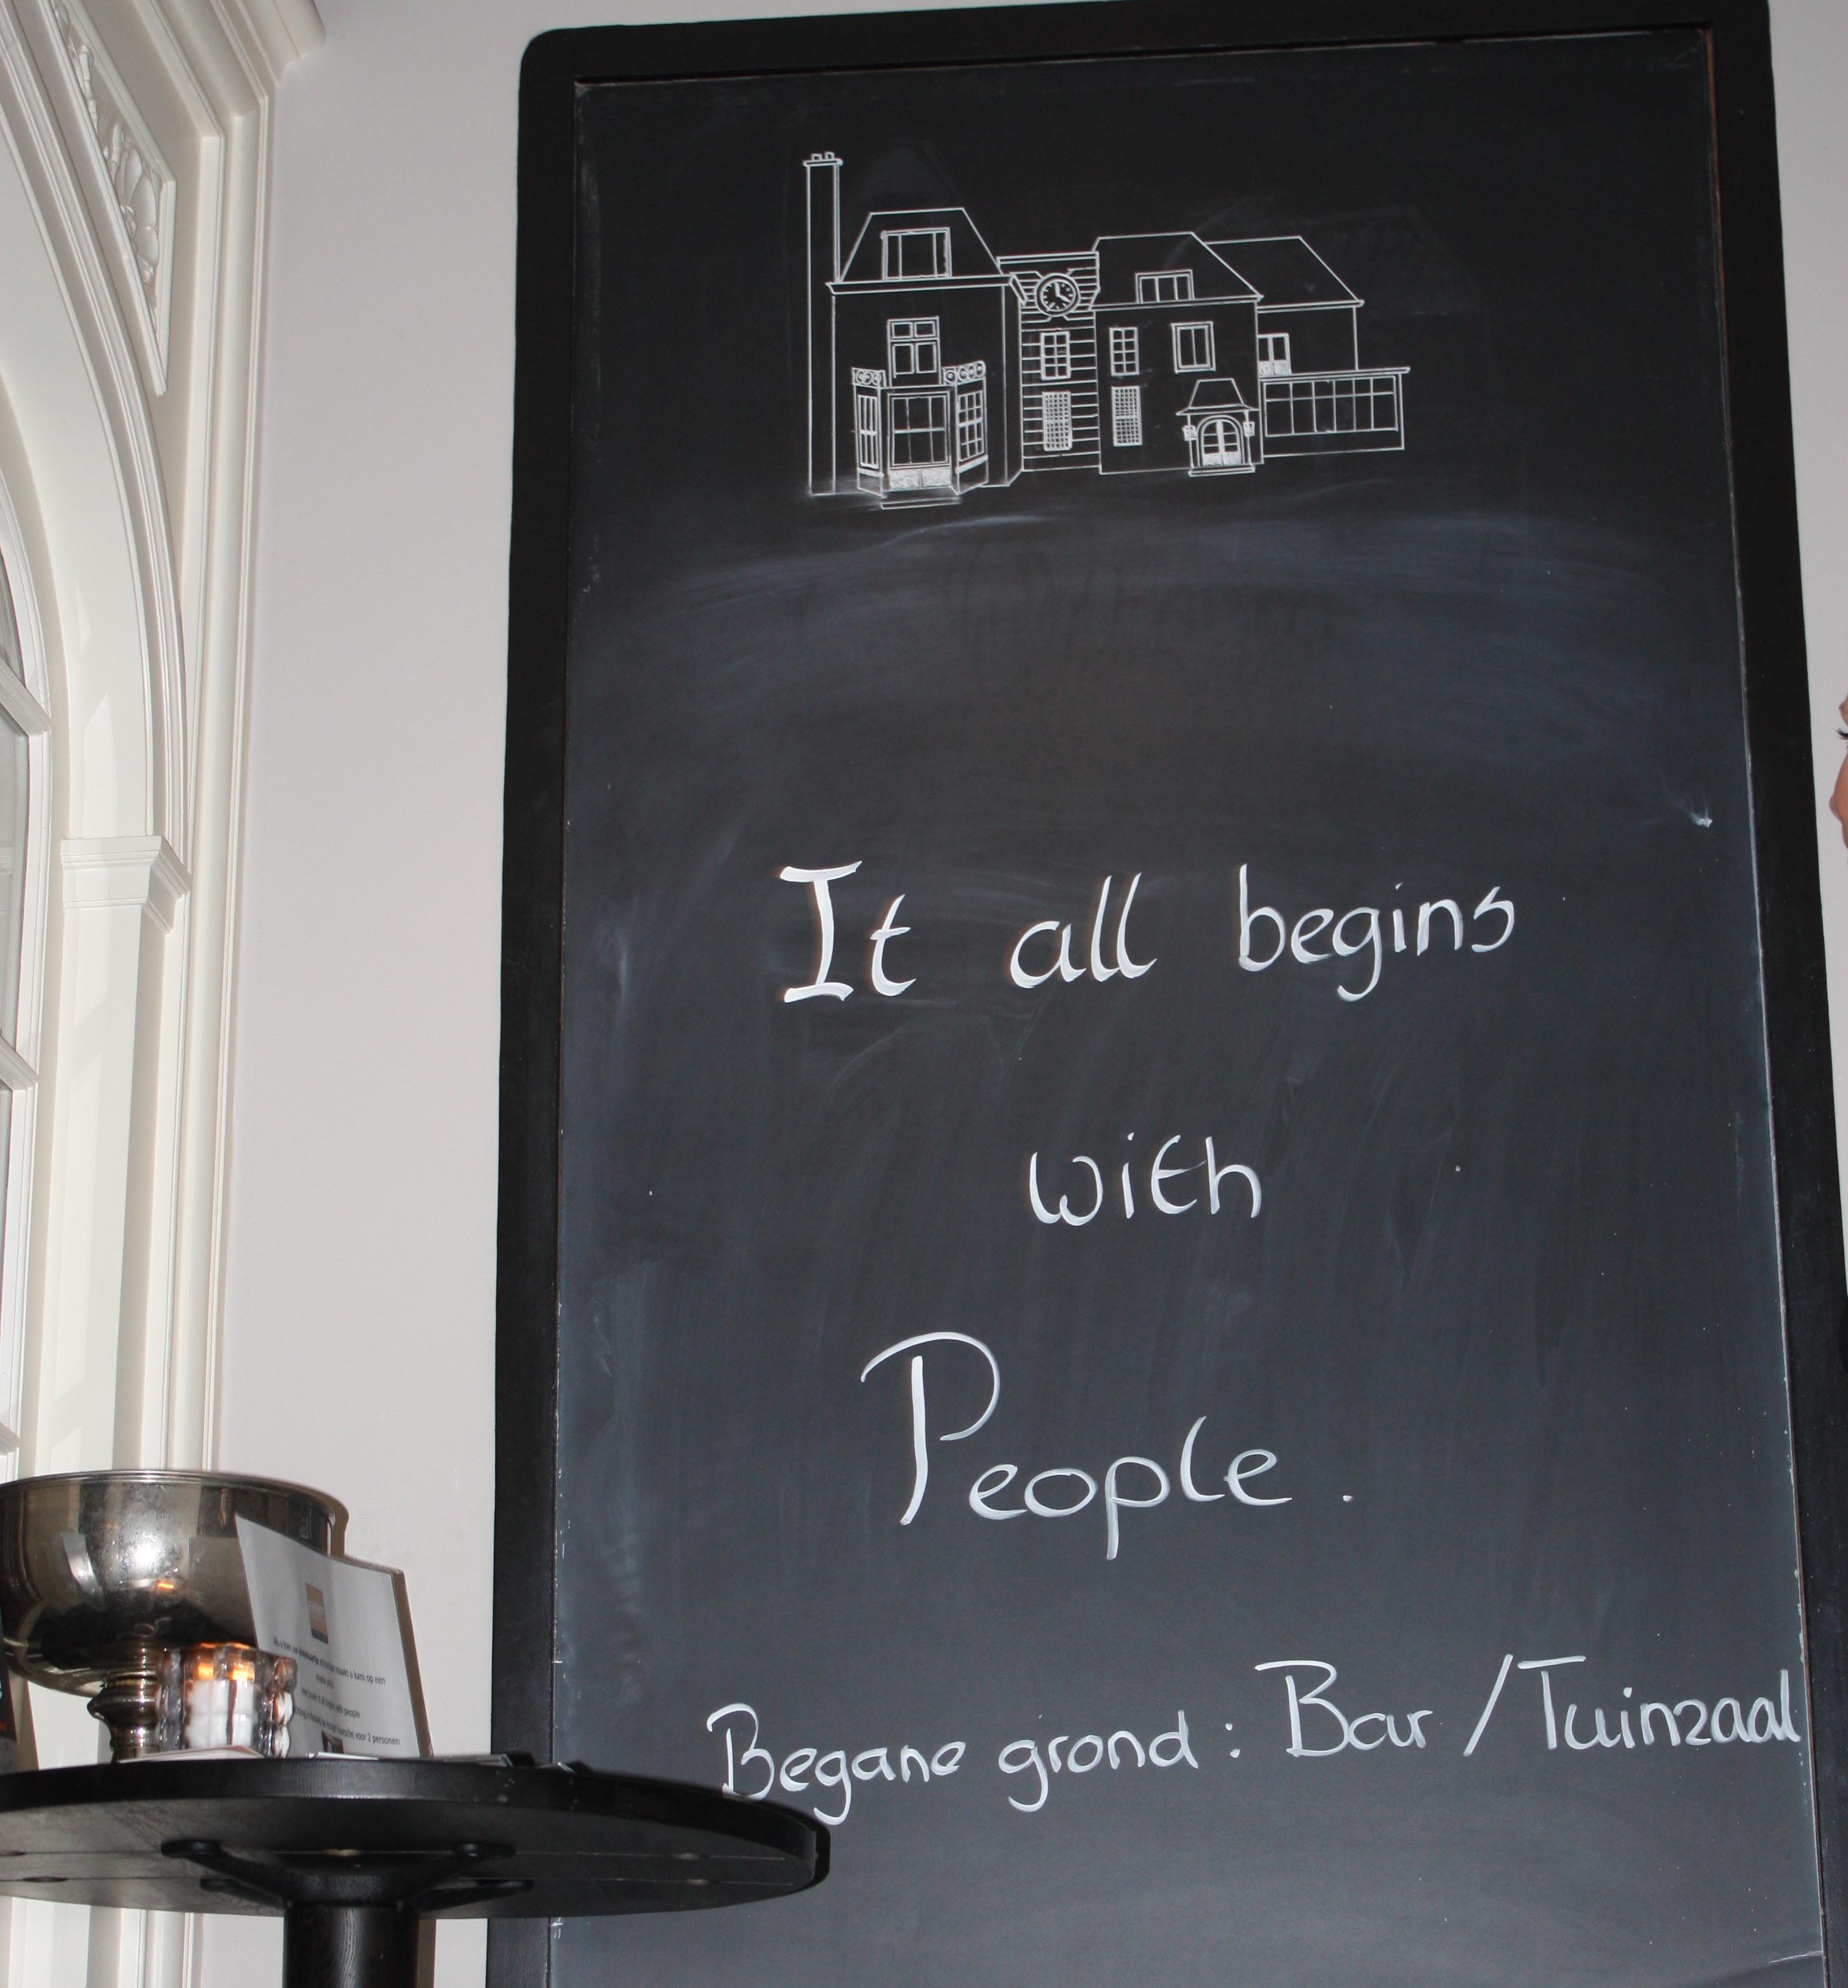 It all begins
with
People.
Begane grond: Bar / Tuinzaal
maakt u kans op een
people
voor 2 personen